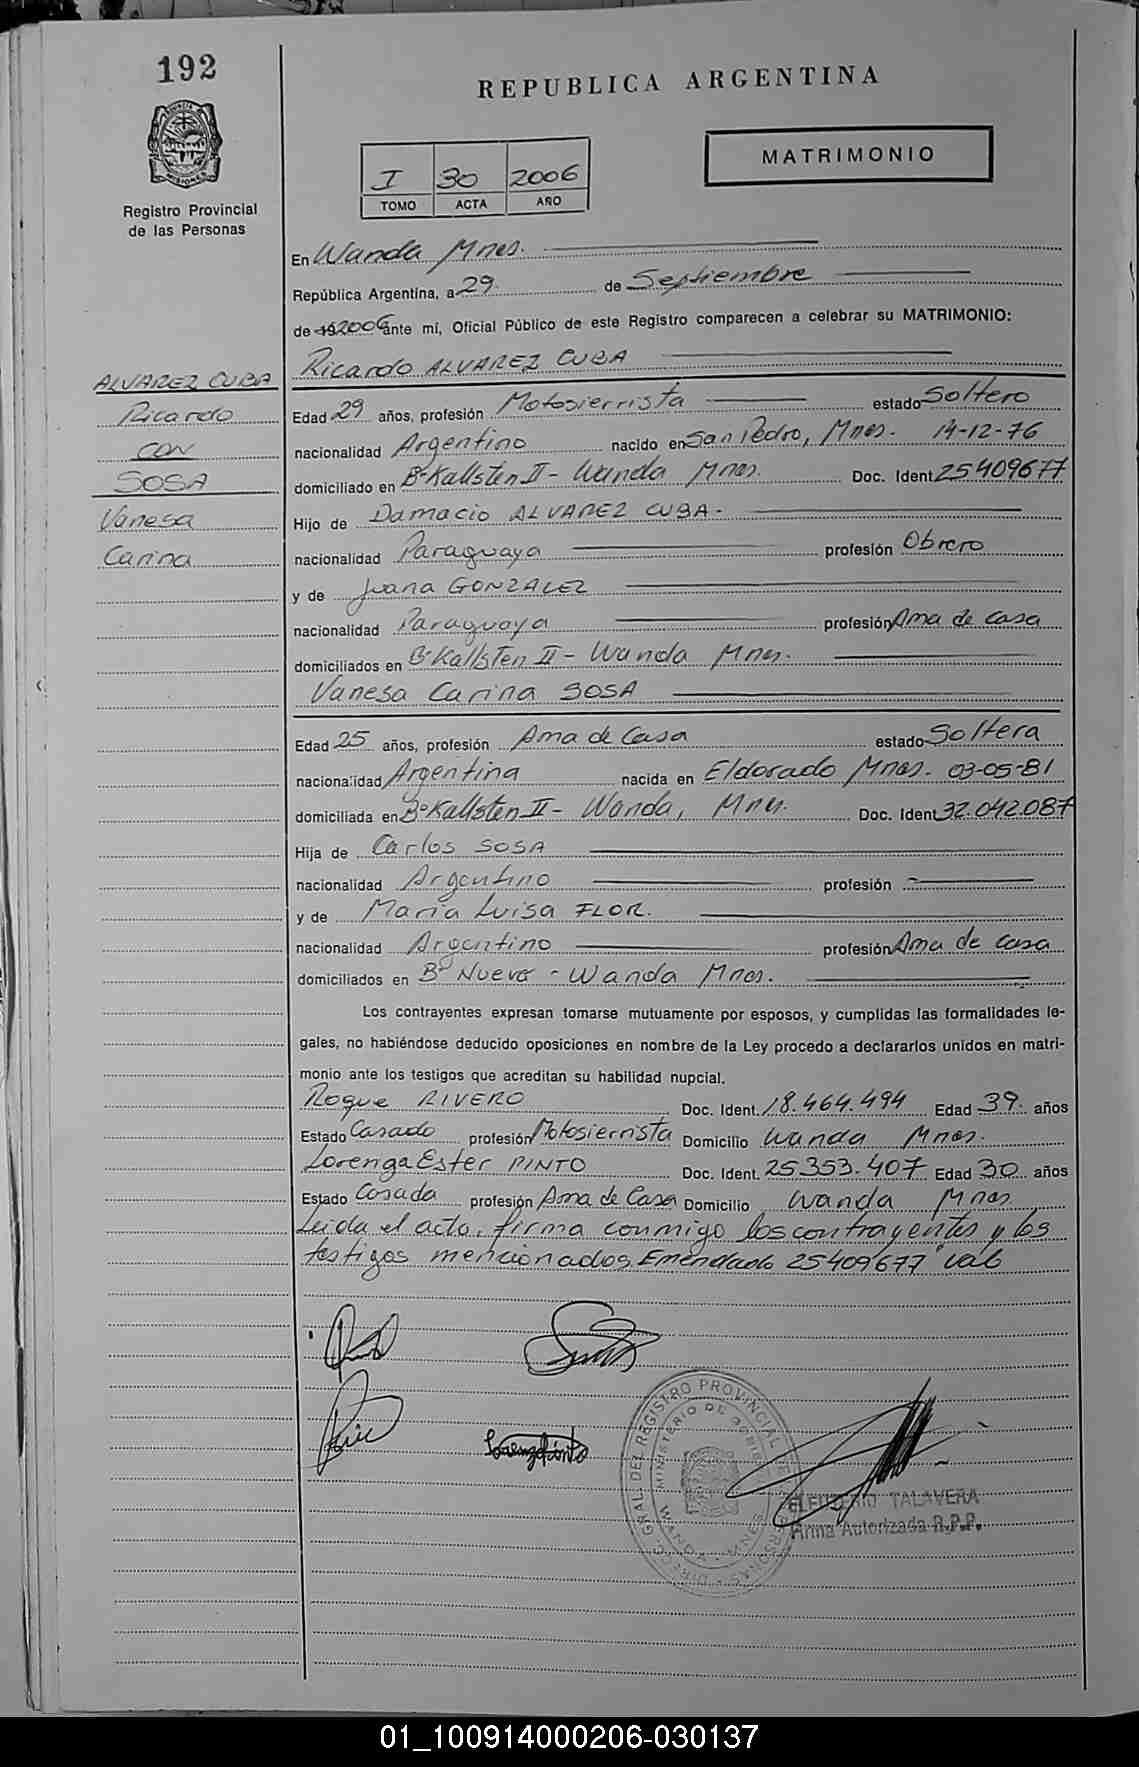 192
REPUBLICA ARGENTINA
Registro Provincial
de las Personas
I 30 2006
TOMO ACTA AÑO
MATRIMONIO
En Wanda Mnes.
República Argentina, a 29 de Septiembre
de 19 2006 ante mí, Oficial Público de este Registro comparecen a celebrar su MATRIMONIO:
Ricardo ALVAREZ CUBA
ALVAREZ CUBA
Ricardo
CON
SOSA
Vanesa
Carina
Edad 29 años, profesión Motosierrista estado Soltero
nacionalidad Argentino nacido en San Pedro, Mnes. 14-12-76
domiciliado en B° Kallsten II - Wanda Mnes. Doc. Ident. 25409677
Hijo de Damacio ALVAREZ CUBA -
nacionalidad Paraguaya profesión Obrero
y de Juana GONZALEZ
nacionalidad Paraguaya profesión Ama de casa
domiciliados en B° Kallsten II - Wanda Mnes.
Vanesa Carina SOSA
Edad 25 años, profesión Ama de Casa estado Soltera
nacionalidad Argentina nacida en Eldorado Mnes. 03-05-81
domiciliada en B° Kallsten II - Wanda, Mnes. Doc. Ident. 32.042.087
Hija de Carlos SOSA
nacionalidad Argentino profesión
y de María Luisa FLOR.
nacionalidad Argentino profesión Ama de casa
domiciliados en B° Nuevo - Wanda Mnes.
Los contrayentes expresan tomarse mutuamente por esposos, y cumplidas las formalidades le-
gales, no habiéndose deducido oposiciones en nombre de la Ley procedo a declararlos unidos en matri-
monio ante los testigos que acreditan su habilidad nupcial.
Roque RIVERO Doc. Ident. 18.464.494 Edad 39. años
Estado Casado profesión Motosierrista Domicilio Wanda Mnes.
Lorenza Ester PINTO Doc. Ident. 25.353.407 Edad 30 años
Estado Casada profesión Ama de Casa Domicilio Wanda Mnes
Leida el acto, firma conmigo los contrayentes y los
testigos mencionados. Emendado 25409677 "vale
Lorenza Pinto
ELEUTERIO TALAVERA
Firma Autorizada R.P.P.
01_100914000206-030137